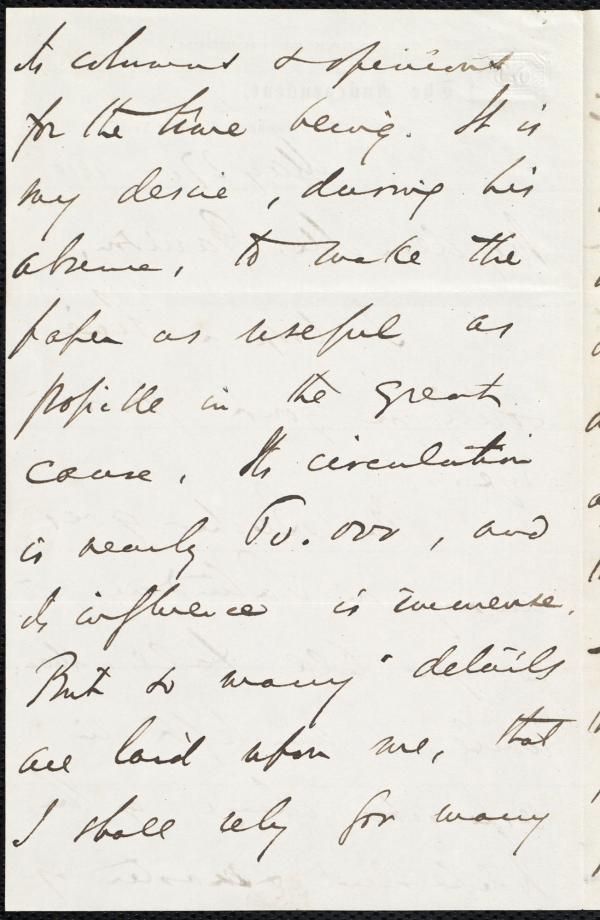 its columns & opinions
for the time being. It is
my desire, during his
absence, to make the
paper as useful as
possible in the great
cause. Its circulation
is nearly 70.000, and
its influence is immense.
But so many details
are laid upon me, that
I shall rely for many